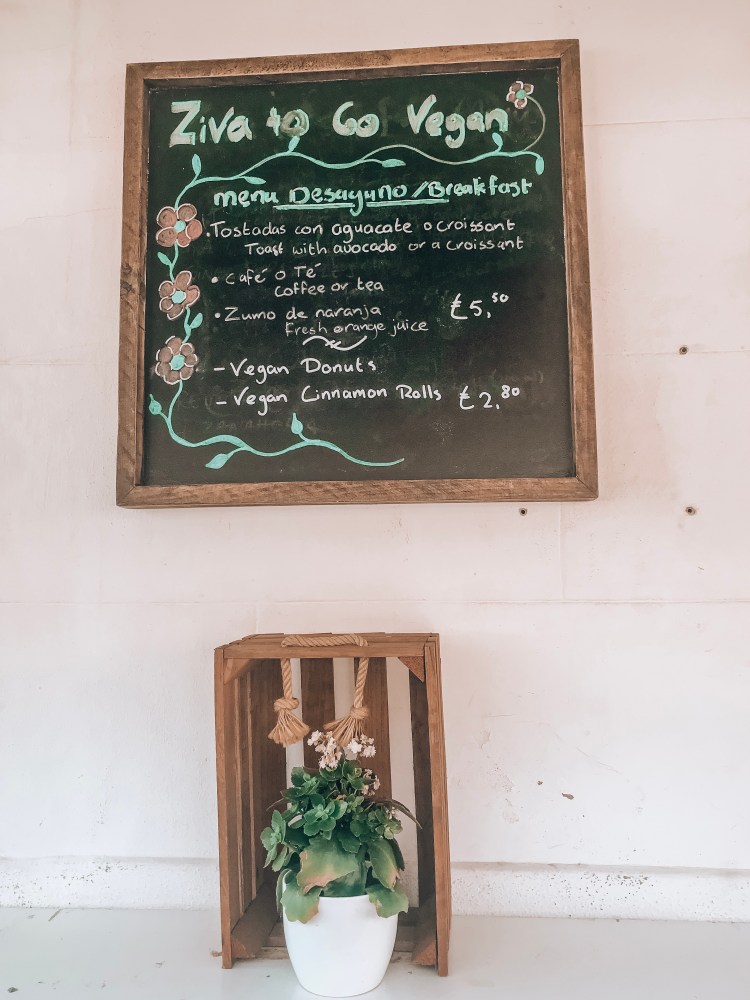 Ziva to Go Vegan
menu Desayuno/Breakfast
• Tostadas con aguacate o croissant
Toast with avocado or a croissant
• Café o Té
Coffee or tea
• Zumo de naranja
Fresh orange juice
€5,50
- Vegan Donuts
- Vegan Cinnamon Rolls €2,80